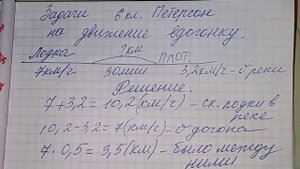 Задачи 6 кл. Петерсон
на движение вдогонку.
Лодка ? км ПЛОТ.
7км/ч 30мин 3,2км/ч – υ реки
Решение.
7+3,2 = 10,2(км/ч) – ск. лодки в реке
10,2-3,2 = 7(км/ч) – υ догона
7 · 0,5 = 3,5(км) – было между ними